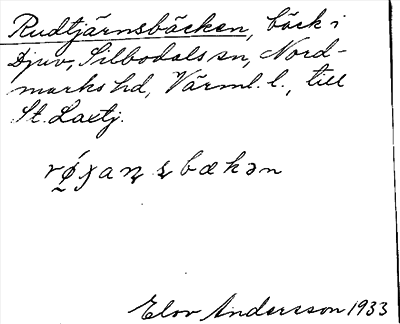 Rudtjärnsbäcken, bäck i
Djuv, Silbodals sn, Nord-
marks hd, Värml. l., till
St. Laxtj.
Elov Andersson 1933